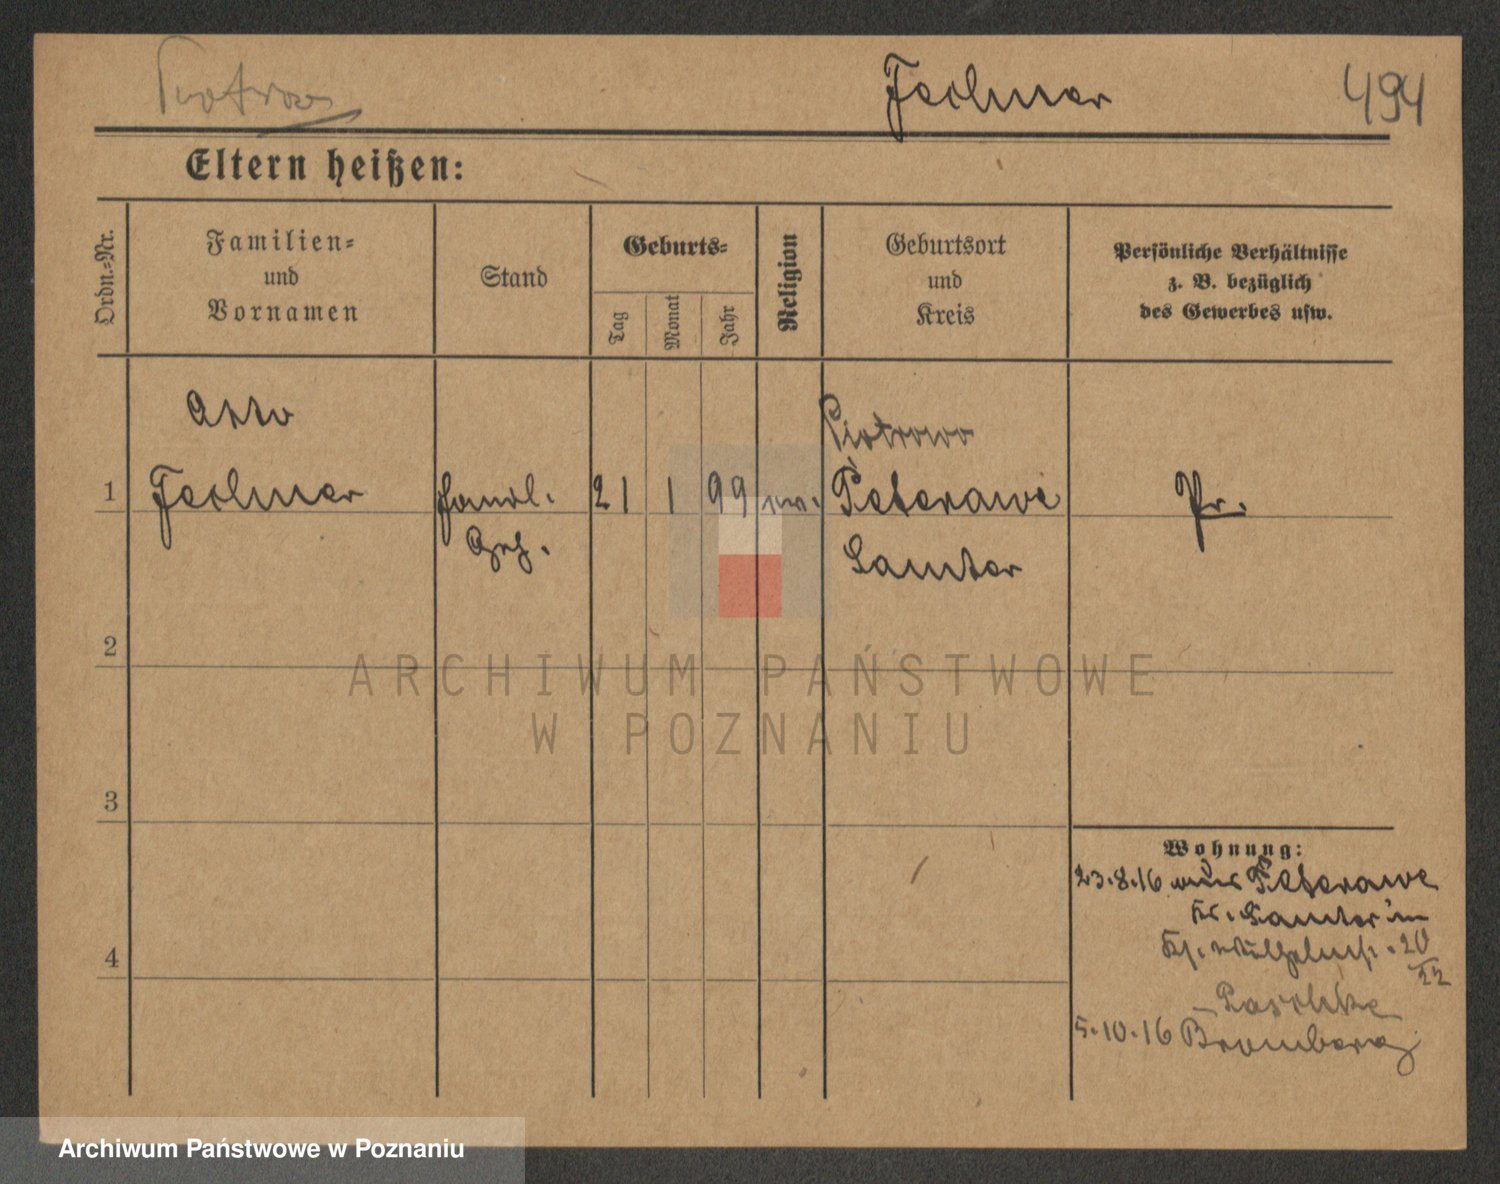 Piotrowo
Fechner
494
Eltern heißen:
Ordn.=Nr.
Familien=
und
Vornamen
Stand
Geburts=
Tag
Monat
Jahr
Religion
Geburtsort
und
Kreis
Persönliche Verhältnisse
z. B. bezüglich
des Gewerbes usw.
Otto
Piotrowo
1
Fechner
Handl.
21
1
99
Peterawe
Pr.
Samter
2
ARCHIWUM PAŃSTWOWE
W POZNANIU
3
Wohnung:
23.8.16 aus Peterawe
Kr. Samter in
20
22
4
Paschke
5.10.16 Bromberg
Archiwum Państwowe w Poznaniu